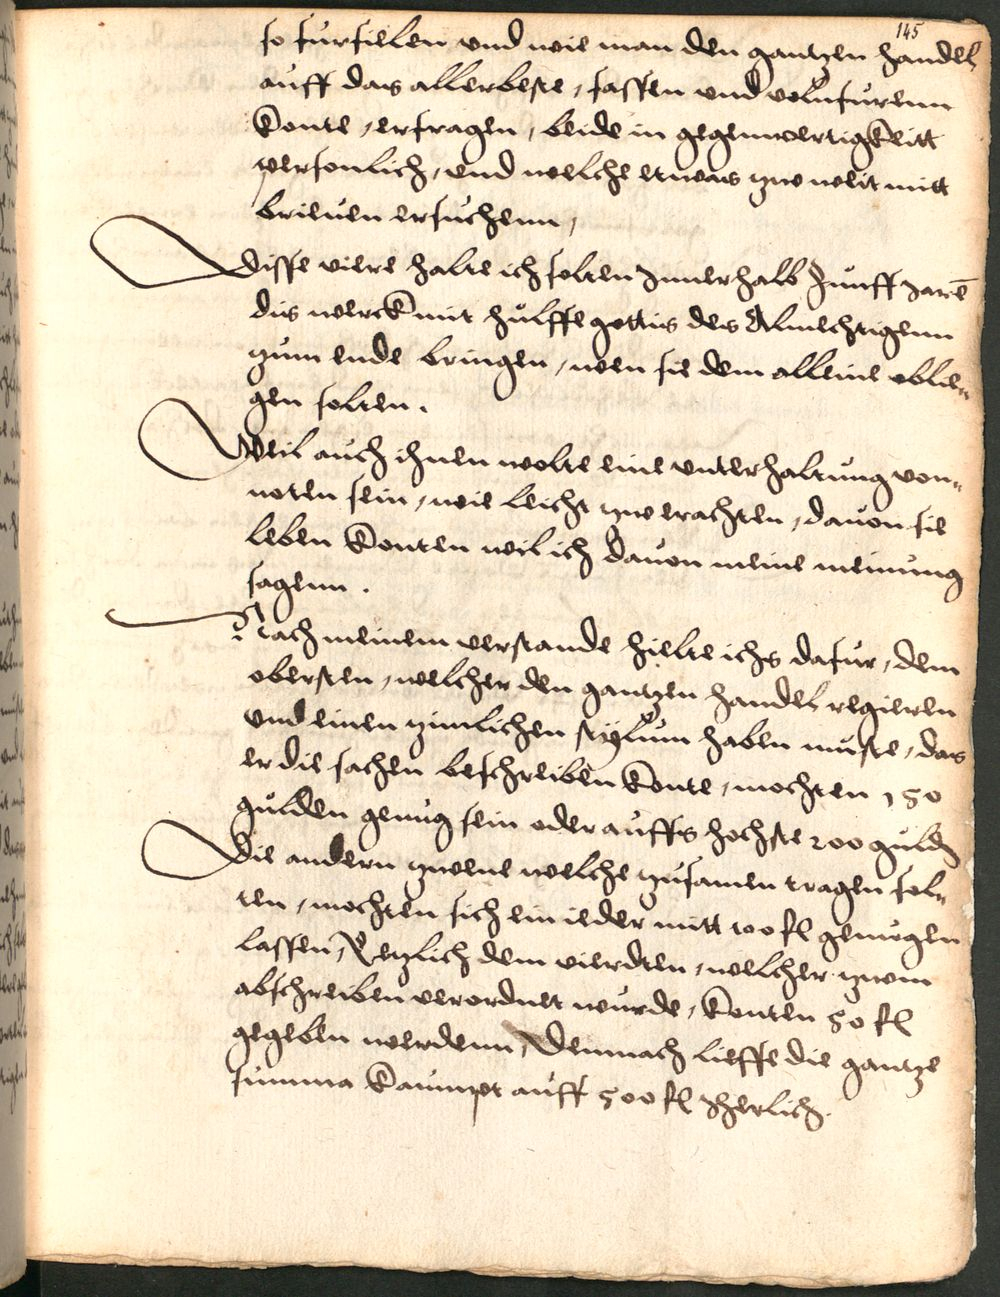 145
so furfielen und wie man den gantzen handel
auff das allerbeste, fassen und volnfurenn
konte, erfragen, beide in gegenwertigkeitt
personlich, und welche etwas zw weit mitt
brieven ersuchenn,
Disse viere halte ich solten Innerhalb funff Jaren
dis werck mit hulffe gottis des Almechtigenn
zum ende bringen, wen sie dem alleine oblie-
gen solten.
Weil auch ihnen wolte eine unterhaltung von-
noten sein, wie leicht zw erachten, davon sie
leben konten wil ich davon meine meinung
sagenn.
Nach meinem verstande hielte ichs dafur, dem
obersten, welcher den gantzen handel regieren
und einen zimlichen stylum haben muste, das
er die sachen beschreiben konte, mochten 150
gulden genug sein oder auffs hochste 200 gulden
Die andern zwene welche zusamen tragen sol-
ten, mochten sich ein ieder mitt 100 fl genugen
lassen, Letzlich dem vierdten, welcher zwm
abschreiben verordnet wurde, konten 50 fl
gegeben werdenn, Demnach lieffe die gantze
summa kaumpt auff 500 fl Jherlich.